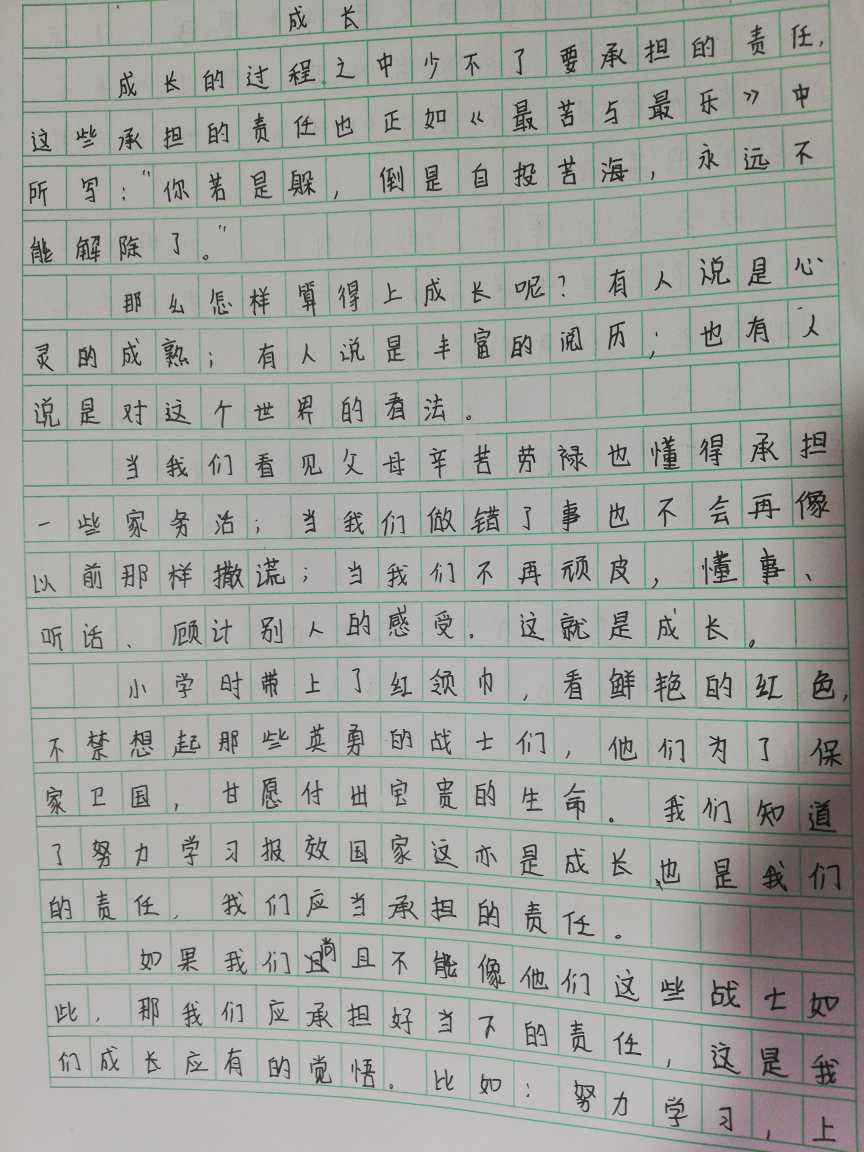 成长
成长的过程之中少不了要承担的责任,
这些承担的责任也正如《最苦与最乐》中
所写:"你若是躲,倒是自投苦海,永远不
能解除了。"
那么怎样算得上成长呢?有人说是心
灵的成熟;有人说是丰富的阅历;也有人
说是对这个世界的看法。
当我们看见父母辛苦劳禄也懂得承担
一些家务活;当我们做错了事也不会再像
以前那样撒谎;当我们不再顽皮,懂事、
听话、顾计别人的感受.这就是成长。
小学时带上了红领巾,看鲜艳的红色,
不禁想起那些英勇的战士们,他们为了保
家卫国,甘愿付出宝贵的生命。我们知道
了努力学习报效国家这亦是成长,也是我们
的责任,我们应当承担的责任。
如果我们尚且不能像他们这些战士如
此,那我们应承担好当下的责任,这是我
们成长应有的觉悟。比如:努力学习,上